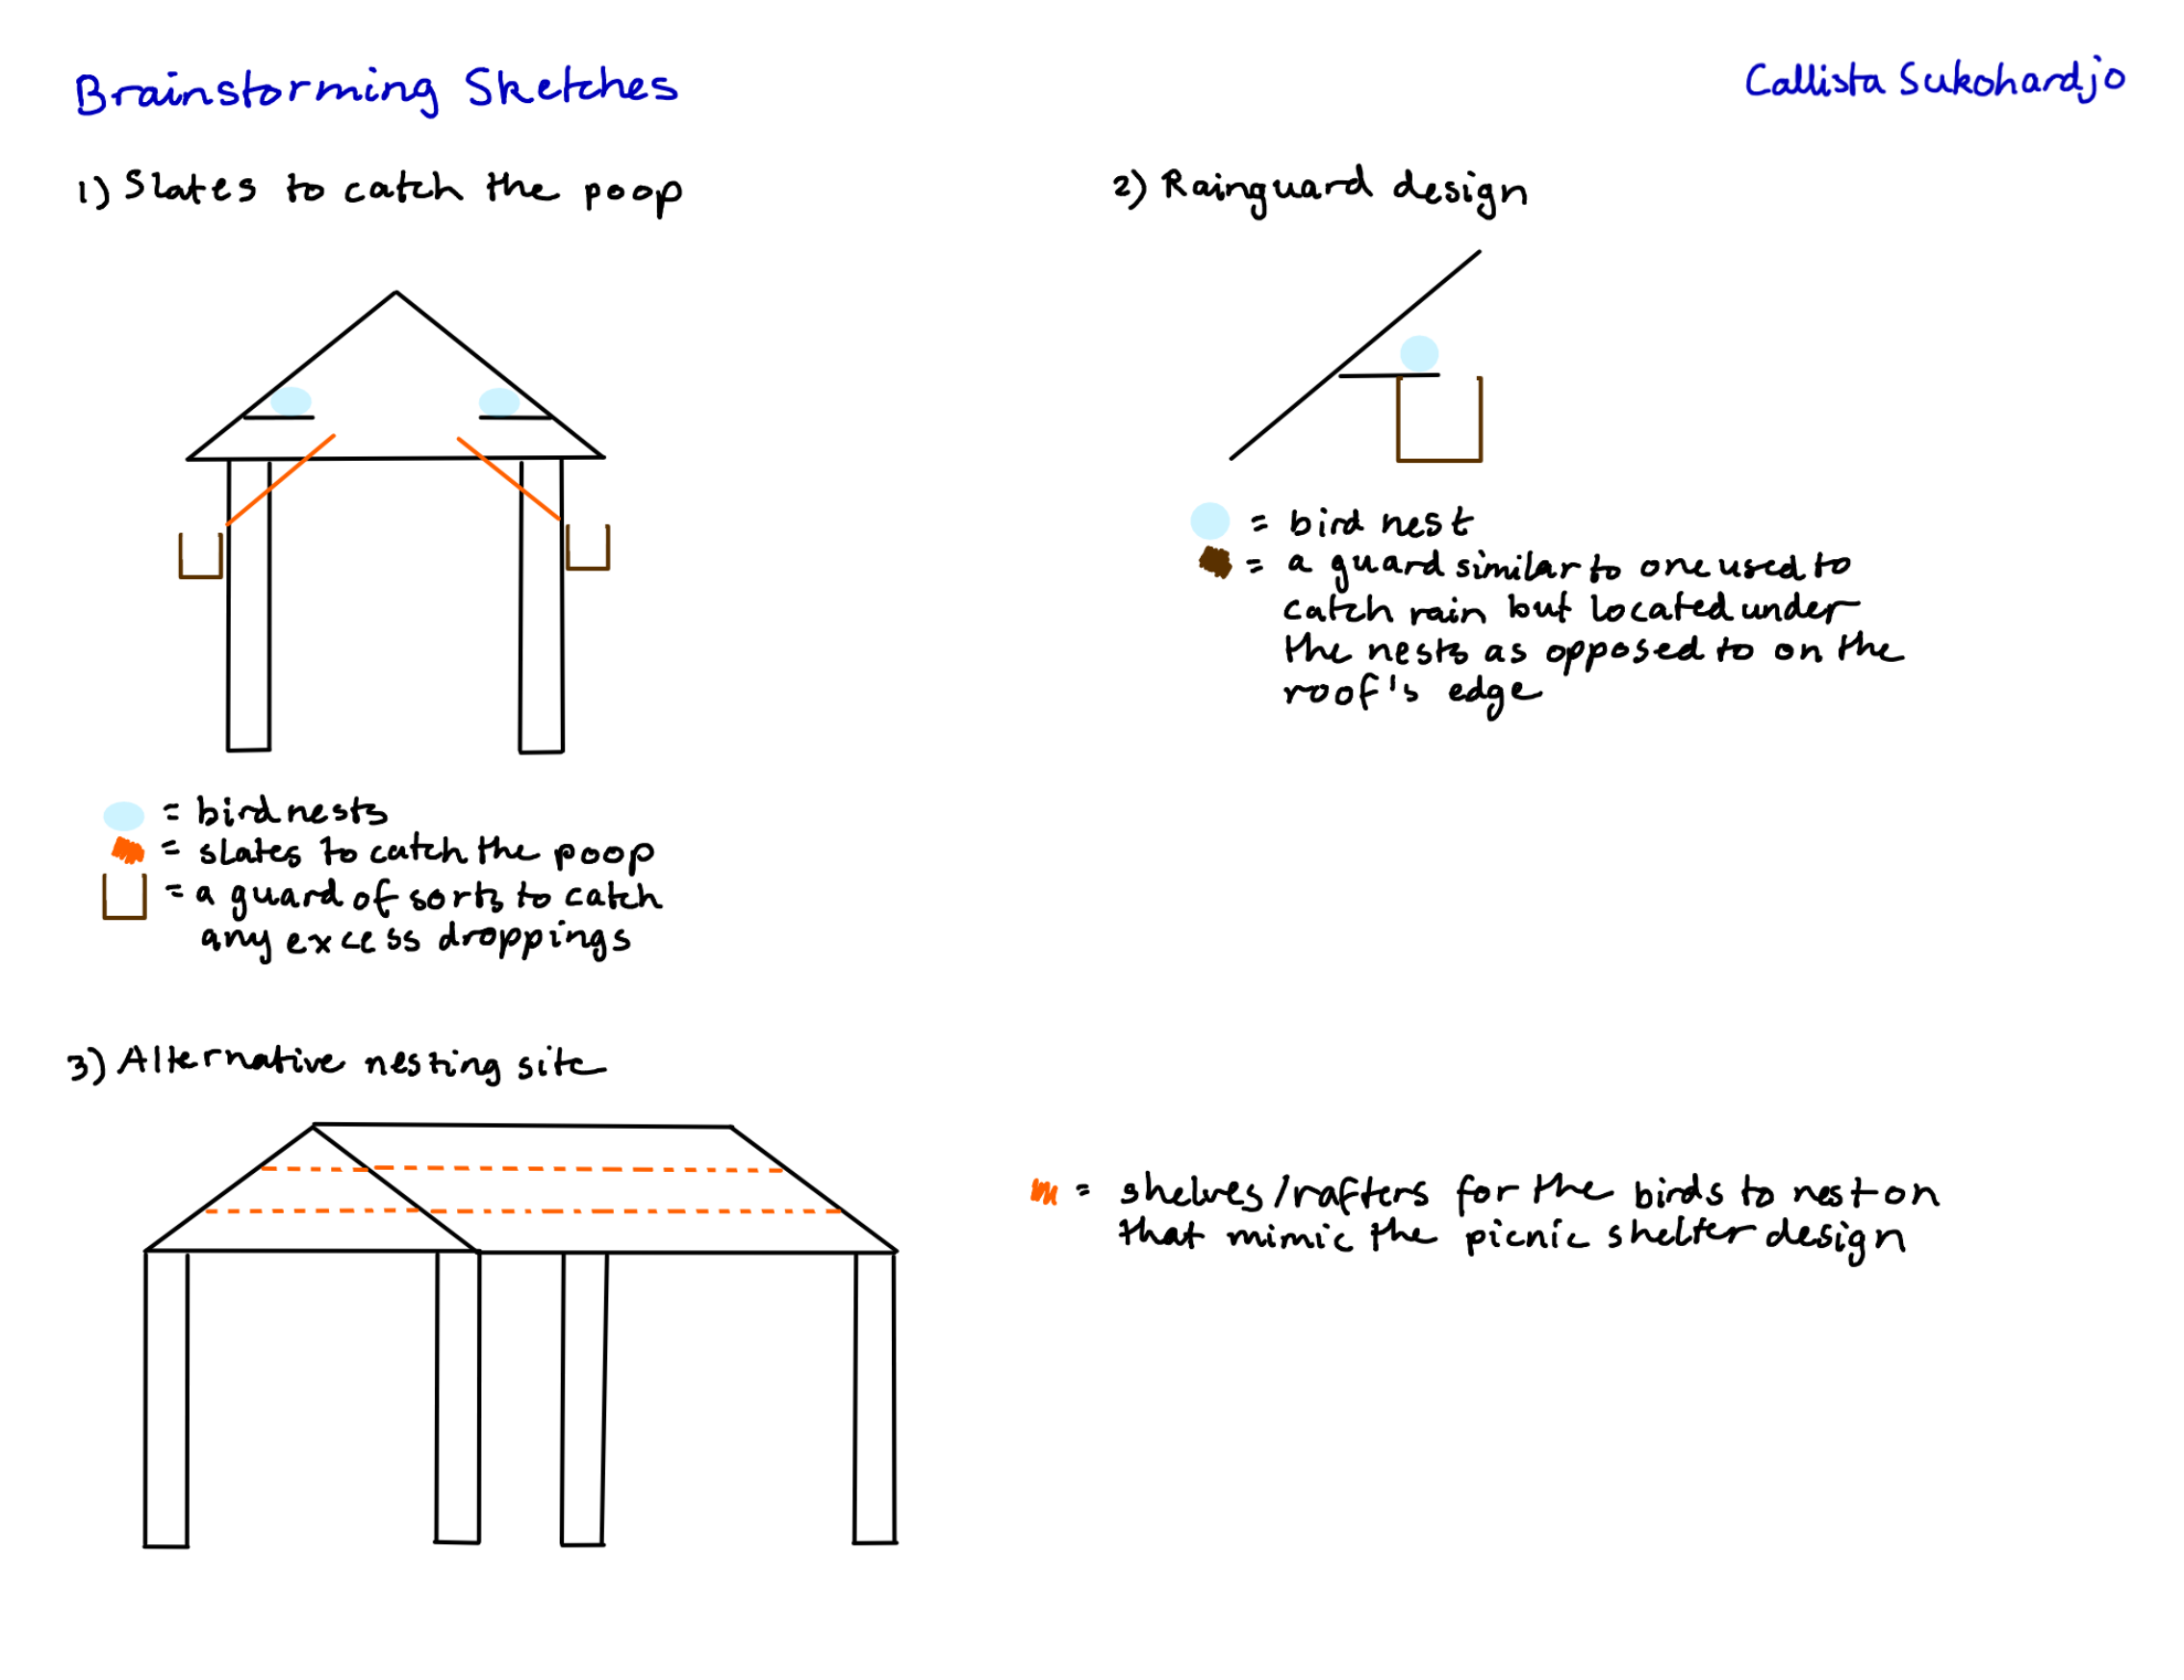 Brainstorming Sketches
Callista Sukohardjo
1) Slates to catch the poop
= bird nests
= slates to catch the poop
= a guard of sorts to catch
any excess droppings
2) Rainguard design
= bird nest
= a guard similar to one used to
catch rain but located under
the nests as opposed to on the
roof's edge
3) Alternative nesting site
= shelves/rafters for the birds to nest on
that mimic the picnic shelter design